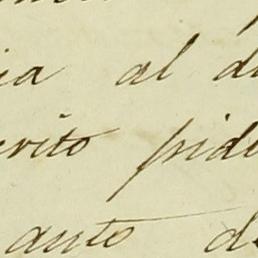 ia al d
rito pide
auto de